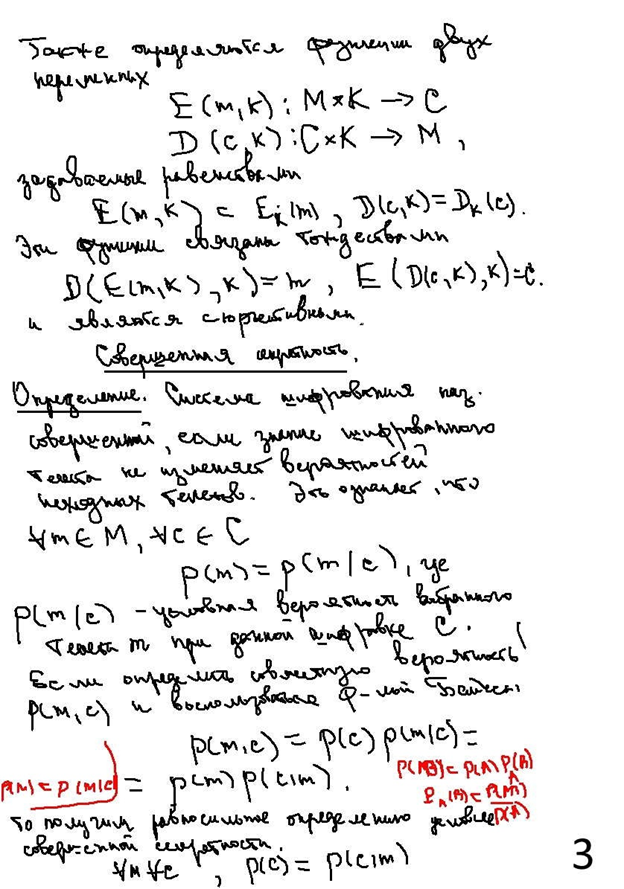 Также определяются функции двух
переменных
E(m,k): M×K → C
D(c,k): C×K → M,
задаваемые равенствами
E(m,k) = E_k(m), D(c,k) = D_k(c).
Эти функции связаны тождествами
D(E(m,k),k) = m, E(D(c,k),k) = c.
и являются сюръективными.
Совершенная секретность.
Определение. Система шифрования наз.
совершенной, если знание шифрованного
текста не изменяет вероятностей
исходных текстов. Это означает, что
∀m ∈ M, ∀c ∈ C
p(m) = p(m|c), где
p(m|c) - условная вероятность выбранного
текста m при данной шифровке C.
Если определить совместную вероятность
p(m,c) и воспользоваться ф-лой Байеса
p(m,c) = p(c) p(m|c) =
p(m) = p(m|c)
= p(m) p(c|m).
P(AB) = P(A) P_A(B)
P_A(B) = P(AB)/P(A)
то получим равносильное определению условие
совершенной секретности.
∀m ∀c, p(c) = p(c|m)
3